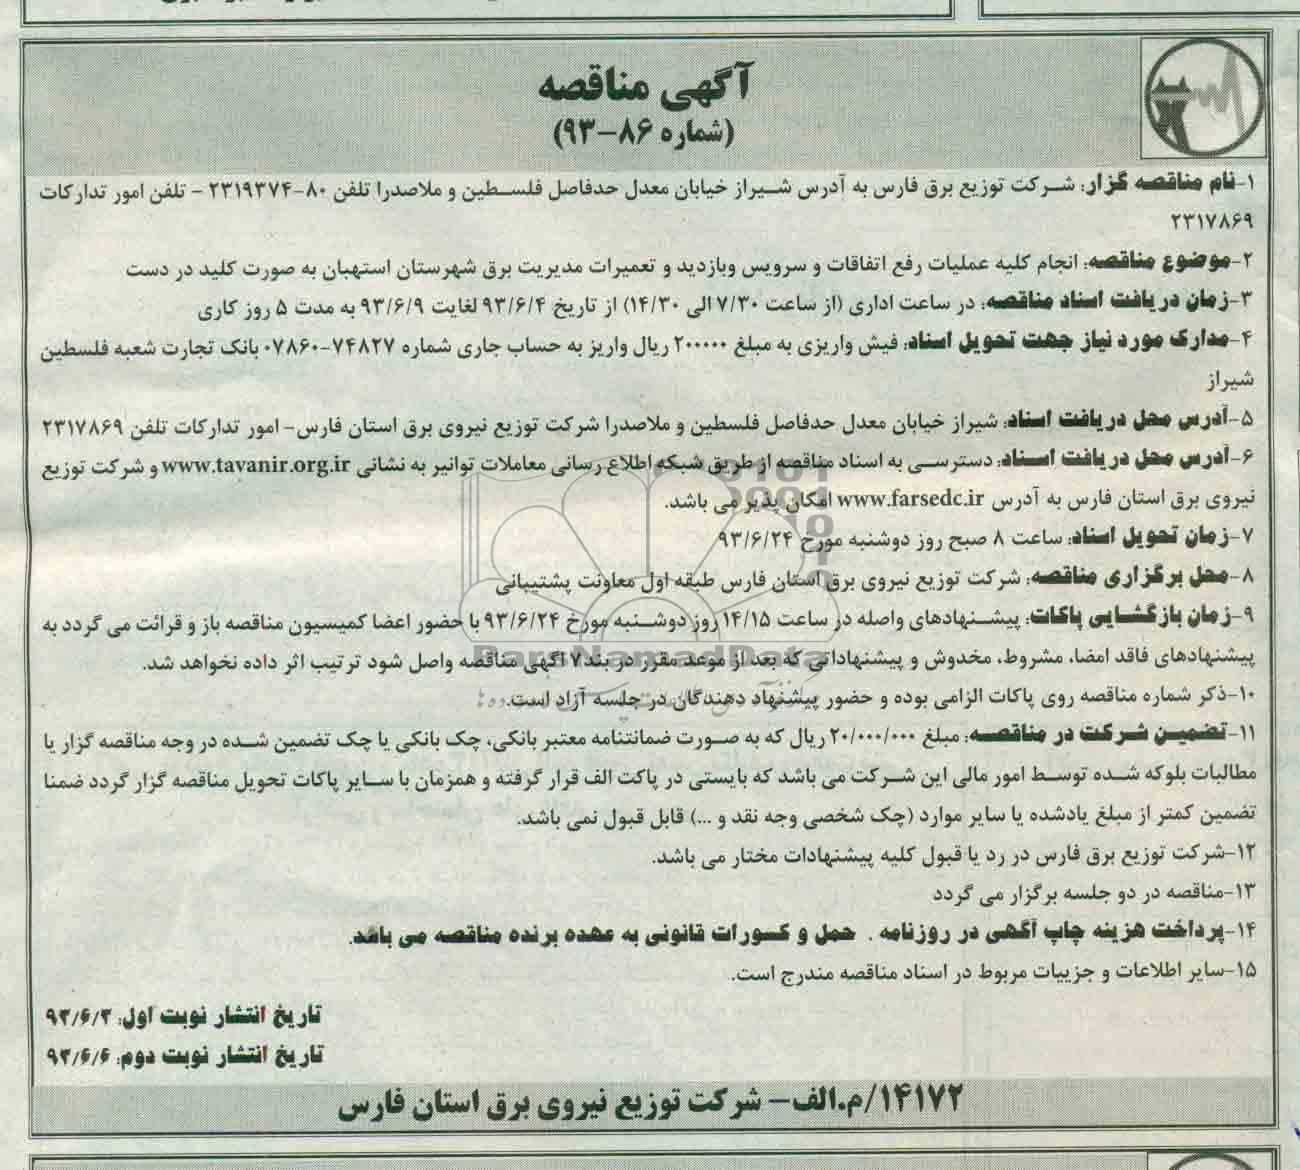 آگهی مناقصه
(شماره ۸۶-۹۳)
۱-نام مناقصه گزار: شرکت توزیع برق فارس به آدرس شیراز خیابان معدل حدفاصل فلسطین و ملاصدرا تلفن ۸۰-۲۳۱۹۳۷۴ - تلفن امور تدارکات
۲۳۱۷۸۶۹
۲-موضوع مناقصه: انجام کلیه عملیات رفع اتفاقات و سرویس وبازدید و تعمیرات مدیریت برق شهرستان استهبان به صورت کلید در دست
۳-زمان دریافت اسناد مناقصه: در ساعت اداری (از ساعت ۷/۳۰ الی ۱۴/۳۰) از تاریخ ۹۳/۶/۴ لغایت ۹۳/۶/۹ به مدت ۵ روز کاری
۴-مدارک مورد نیاز جهت تحویل اسناد: فیش واریزی به مبلغ ۲۰۰۰۰۰ ریال واریز به حساب جاری شماره ۷۴۸۲۷-۰۷۸۶۰ بانک تجارت شعبه فلسطین
شیراز
۵-آدرس محل دریافت اسناد: شیراز خیابان معدل حدفاصل فلسطین و ملاصدرا شرکت توزیع نیروی برق استان فارس- امور تدارکات تلفن ۲۳۱۷۸۶۹
۶-آدرس محل دریافت اسناد: دسترسی به اسناد مناقصه از طریق شبکه اطلاع رسانی معاملات توانیر به نشانی www.tavanir.org.ir و شرکت توزیع
نیروی برق استان فارس به آدرس www.farsedc.ir امکان پذیر می باشد.
۷-زمان تحویل اسناد: ساعت ۸ صبح روز دوشنبه مورخ ۹۳/۶/۲۴
۸-محل برگزاری مناقصه: شرکت توزیع نیروی برق استان فارس طبقه اول معاونت پشتیبانی
۹-زمان بازگشایی پاکات: پیشنهادهای واصله در ساعت ۱۴/۱۵ روز دوشنبه مورخ ۹۳/۶/۲۴ با حضور اعضا کمیسیون مناقصه باز و قرائت می گردد به
پیشنهادهای فاقد امضا، مشروط، مخدوش و پیشنهاداتی که بعد از موعد مقرر در بند ۷ آگهی مناقصه واصل شود ترتیب اثر داده نخواهد شد.
ParsNamadData
۱۰-ذکر شماره مناقصه روی پاکات الزامی بوده و حضور پیشنهاد دهندگان در جلسه آزاد است.
۱۱-تضمین شرکت در مناقصه: مبلغ ۲۰/۰۰۰/۰۰۰ ریال که به صورت ضمانتنامه معتبر بانکی، چک بانکی یا چک تضمین شده در وجه مناقصه گزار یا
مطالبات بلوکه شده توسط امور مالی این شرکت می باشد که بایستی در پاکت الف قرار گرفته و همزمان با سایر پاکات تحویل مناقصه گزار گردد ضمنا
تضمین کمتر از مبلغ یادشده یا سایر موارد (چک شخصی وجه نقد و ...) قابل قبول نمی باشد.
۱۲-شرکت توزیع برق فارس در رد یا قبول کلیه پیشنهادات مختار می باشد.
۱۳-مناقصه در دو جلسه برگزار می گردد
۱۴-پرداخت هزینه چاپ آگهی در روزنامه . حمل و کسورات قانونی به عهده برنده مناقصه می باشد.
۱۵-سایر اطلاعات و جزییات مربوط در اسناد مناقصه مندرج است.
تاریخ انتشار نوبت اول: ۹۳/۶/۳
تاریخ انتشار نوبت دوم: ۹۳/۶/۶
۱۴۱۷۲/م.الف- شرکت توزیع نیروی برق استان فارس